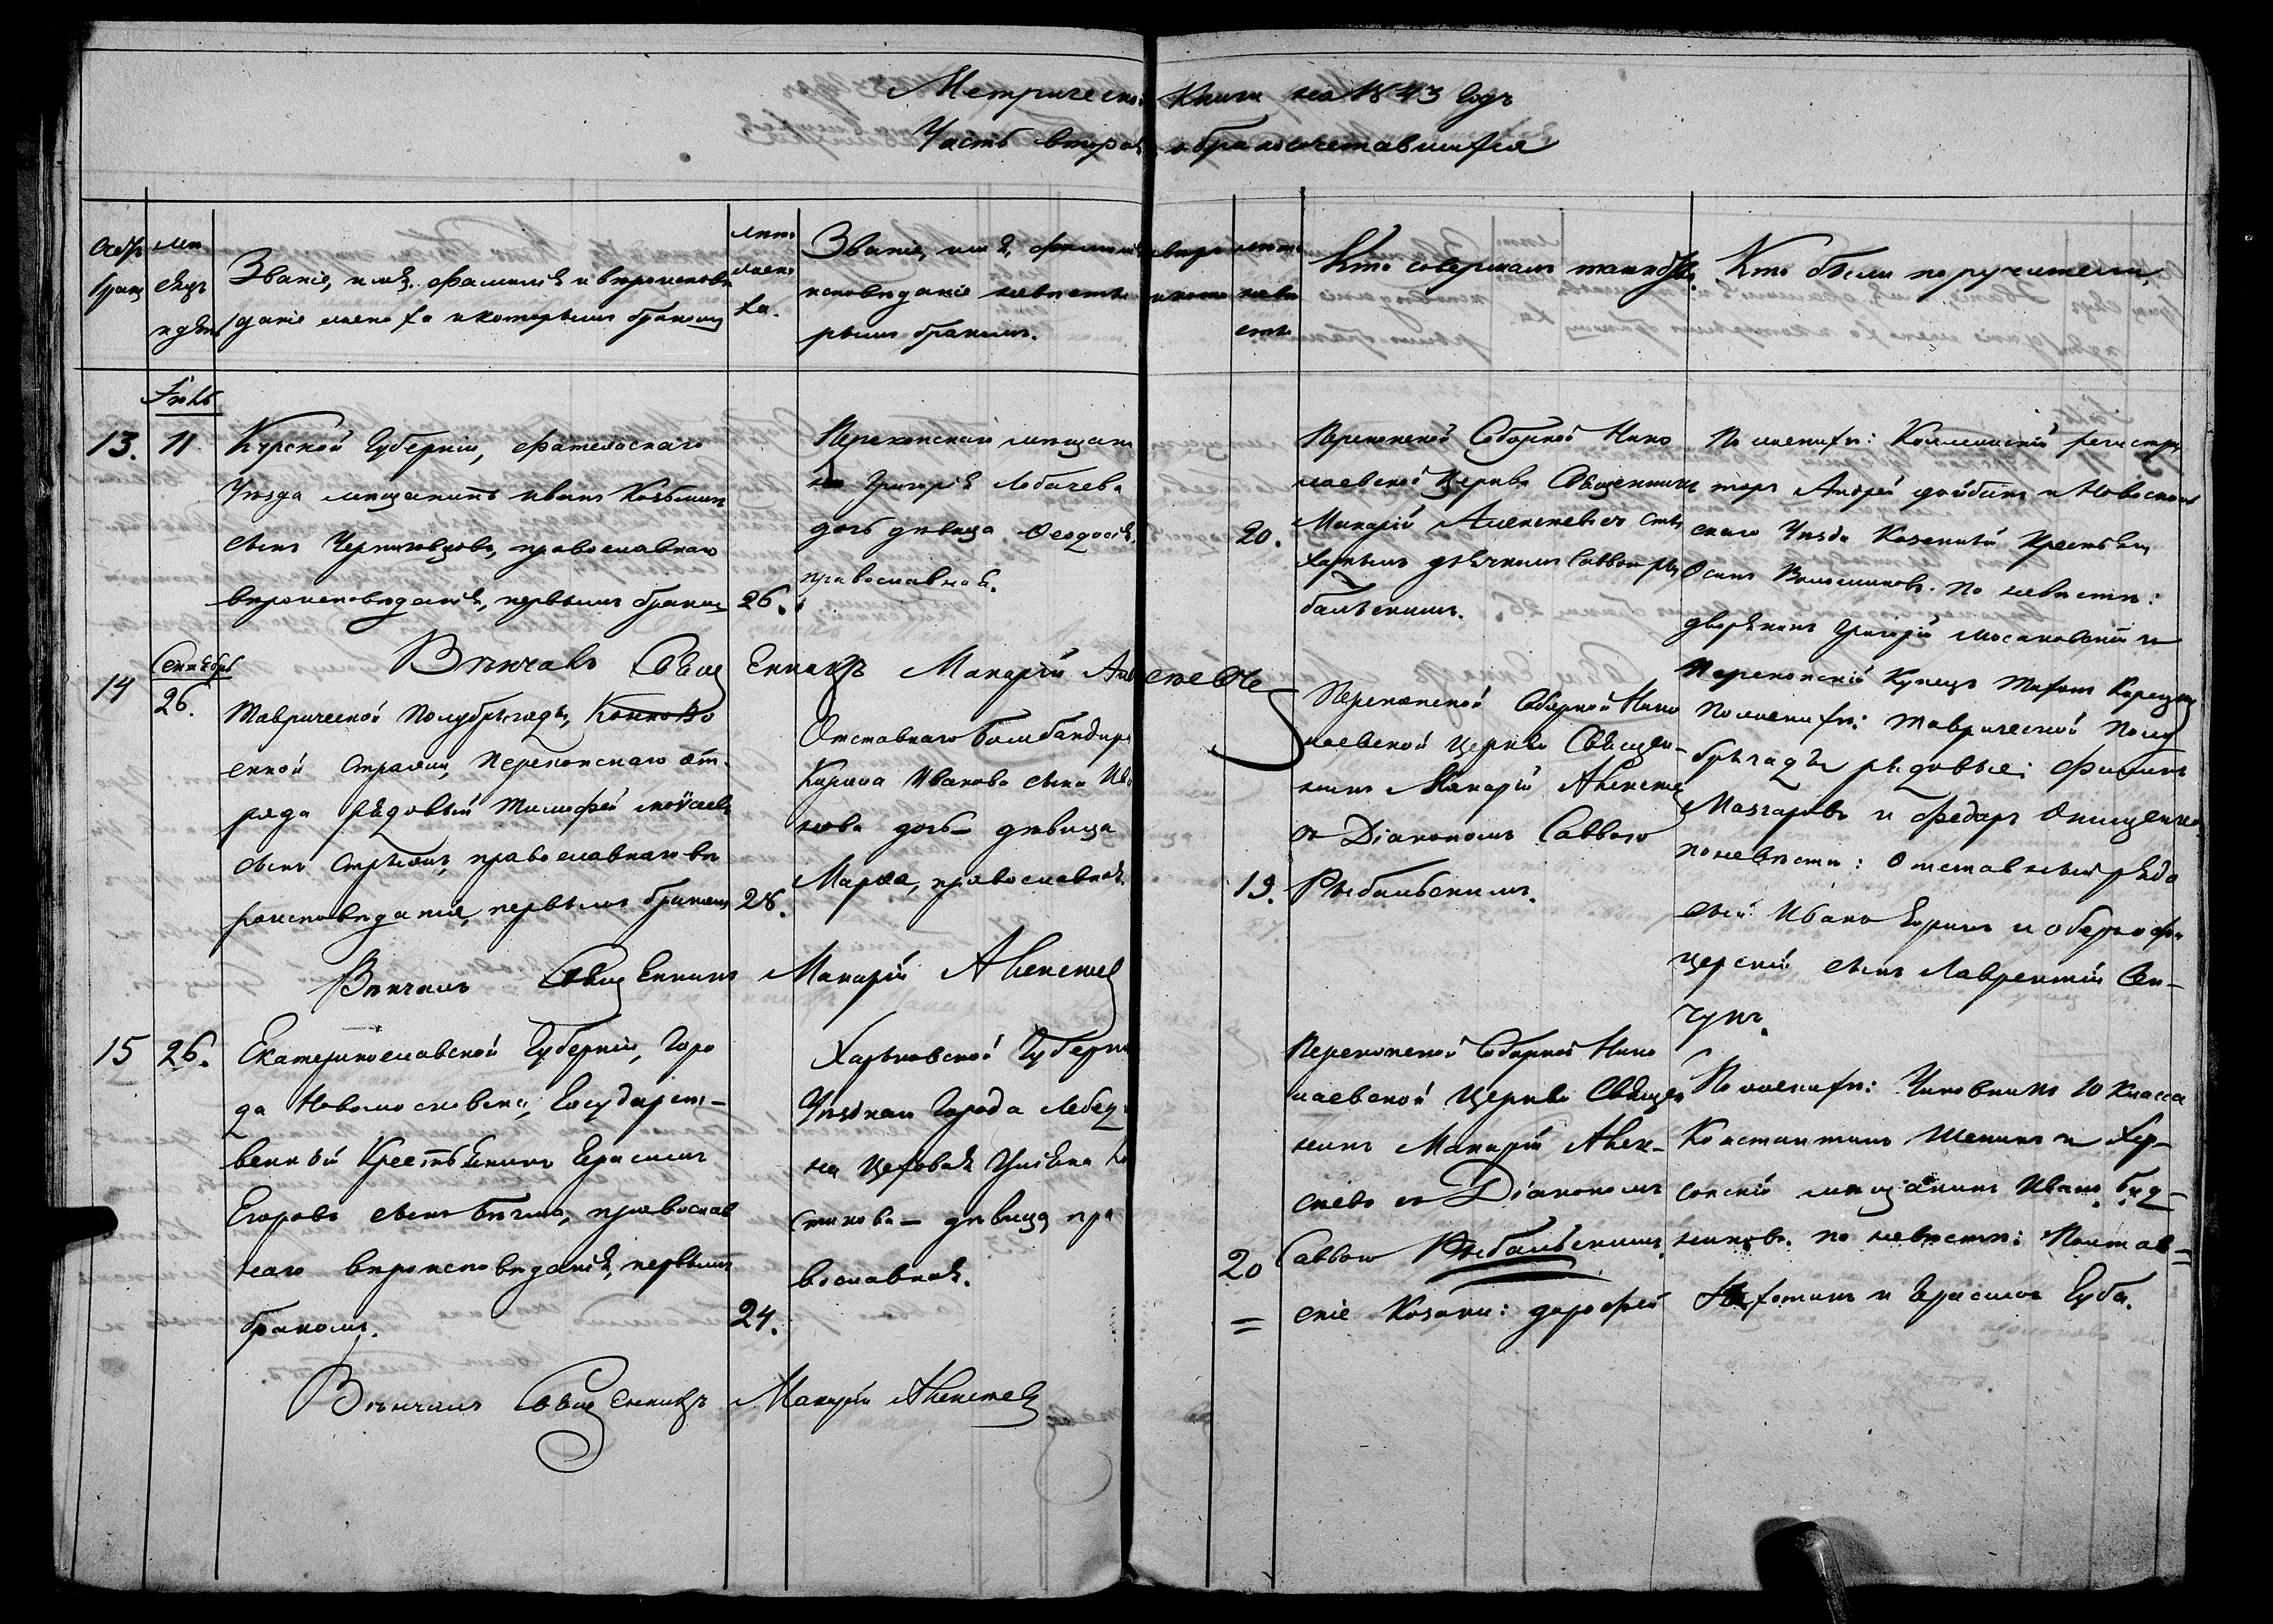 Метрической Книги на 1843 Годъ
Часть вторая, о бракосочетавшихся
Звание, имя, фамилия и вероиспове
дание жениха и которымъ бракомъ
лета
жени
ха.
Звание, имя, фамилия и веро
исповедание невесты и кото
рымъ бракомъ.
лета
неве
сты
Кто совершалъ таинство.
Кто были поручители.
Іюль
13. 11
Курской Губерніи, Фатежскаго
Уезда мещанинъ Иванъ Козьминъ
сынъ православнаго
вероисповеданія, первымъ бракомъ
26.
Перекопскаго мещани
на Григорія Лобачева
дочь девица Феодосія,
православная.
20.
Перекопской Соборной Нико
лаевской Церкви Священникъ
Макарій Алексеевъ съ
дьячкомъ Саввою Ры
бальскимъ.
По женихе: Коллежскій регистра
торъ Андрей и Новоскол
скаго Уезда Казенный Крестьян
Осипъ По невесте:
дворянинъ Григорій и
Перекопскій Купецъ
Венчалъ Священникъ Макарій Алексеевъ
14
Сентябрь
26.
Таврической Полубригады,
енной Стражи, Перекопскаго От-
ряда рядовый Тимофей Моѵсеевъ
сынъ православнаго ве
роисповеданія, первымъ бракомъ
28.
Отставнаго Бомбандира
Кирила Иванова сына Ива
нова дочь — девица
Марѳа, православная.
19.
Перекопской Соборной Нико
лаевской Церкви Священ-
никъ Макарій Алексеевъ
съ Діакономъ Саввою
Рыбальскимъ.
По женихе: Таврической Полу
бригады рядовые: Филипъ
и Федоръ Онищенко.
по невесте: Отставный рядо
вый Иванъ и оберъ офи
церскій сынъ Лаврентій Сен-
чукъ.
Венчалъ Священникъ Макарій Алексеевъ
15 26.
Екатеринославской Губерніи, Горо
да Новомосковска, Государст-
венный Крестьянинъ Герасимъ
Егоровъ сынъ православ
наго вероисповеданія, первымъ
бракомъ.
24.
Харьковской Губерніи
Уезднаго Города Лебедя
на Цеховая
девица, пра
вославная.
20
=
Перекопской Соборной Нико
лаевской Церкви Священ
никъ Макарій Алек-
сеевъ съ Діакономъ
Саввою Рыбальскимъ.
По женихе: Чиновникъ 10 класса
Константинъ и Хер-
сонскій мещанинъ Иванъ
по невесте: Полтав=
скіе Козаки: Дорофей и Герасимъ Губа.
Венчалъ Священникъ Макарій Алексеевъ